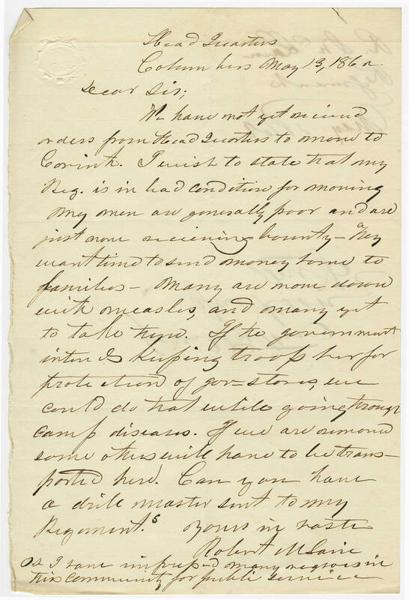 Head Quarters
Columbus May 13, 1862.
Dear Sir;
We have not yet received
orders from Head Quarters to move to
Corinth. I wish to state that my
Reg. is in bad condition for moving
My men are generally poor and are
just now receiving bounty - They
want time to send money home to
families - Many are now down
with measles, and many yet
to take them. If the government
intends keeping troops her for
protection of gov= stores, we
could do that while going through
camp diseases. If we are removed
some others will have to be trans-
ported here. Can you have
a drill master sent to my
Regiment.
Yours in haste
Robert McLain
I have impres-d many negroes in
this community for public service